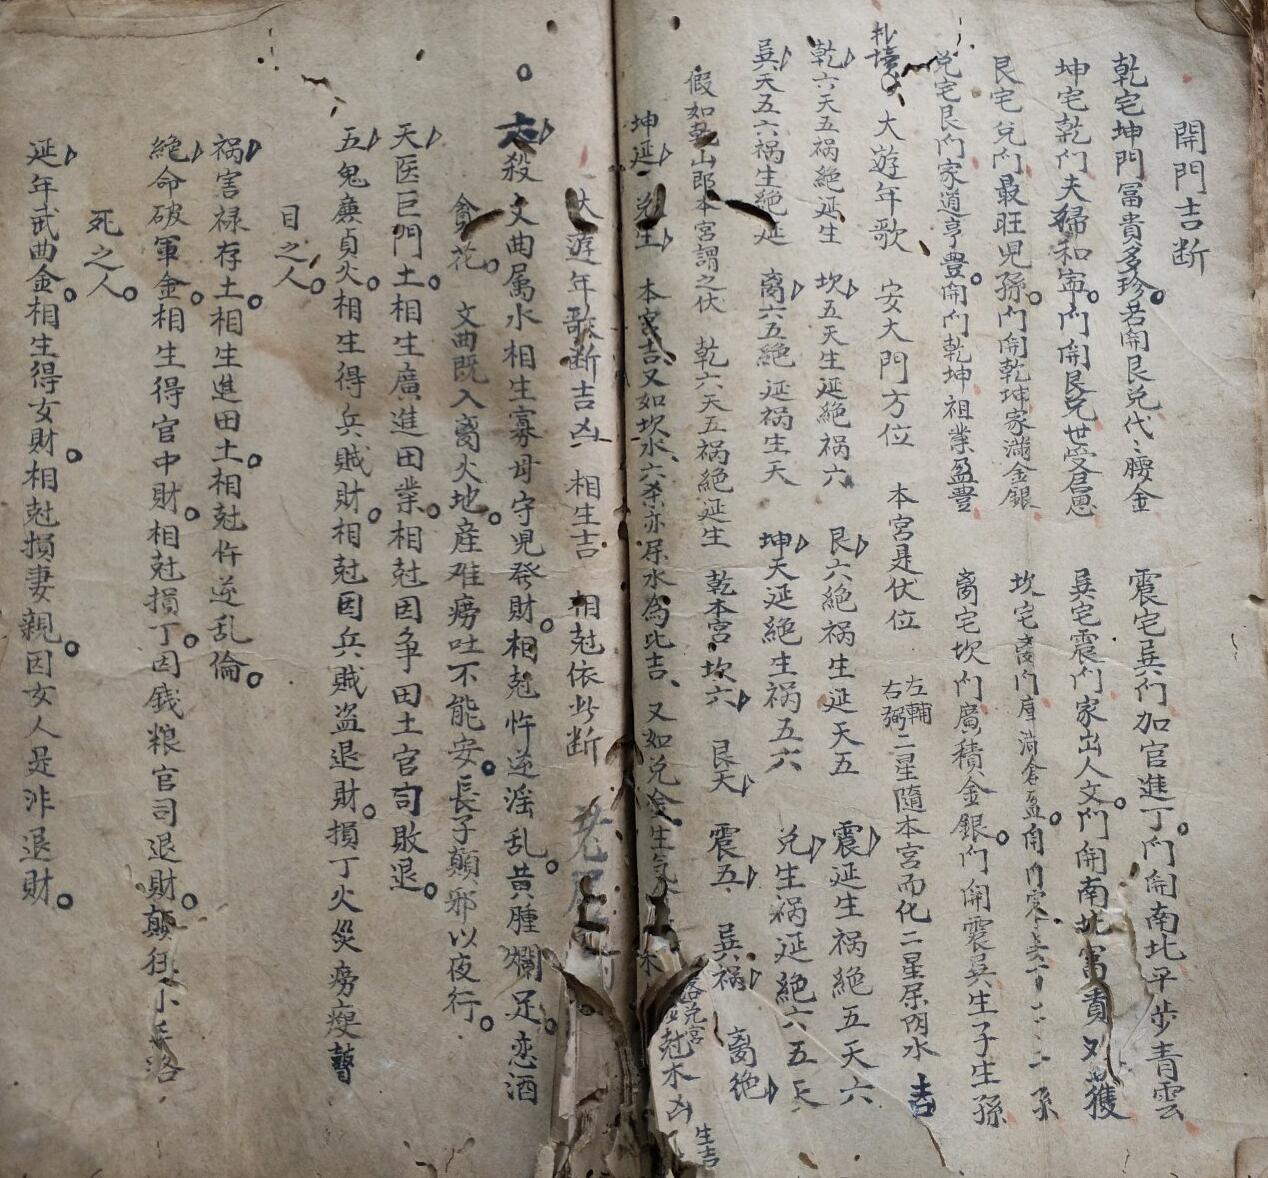 開門吉断
乾宅坤門冨貴多珍若開艮兑代〻腰金
震宅巽门加官進丁门開南北平步青雲
坤宅乾门夫婦和寍门開艮兑世受君恩
巽宅震门家出人文门開南北富貴 獲
艮宅兑门最旺児孫门開乾坤家满金銀
坎宅离门庫满倉盈開门 孫
兑宅艮门家道亨豊開门乾坤祖業盈豊
离宅坎门廣積金銀门開震巽生子生孫
大遊年歌 安大門方位 本宮是伏位 左輔右弼二星隨本宮而化二星屈阴水吉
乾六天五祸絶延生 坎五天生延絶祸六 艮六絶祸生延天五 震延生祸絶五天六
巽天五六祸生絶延 离六五絶延祸生天 坤天延絶生祸五六 兑生祸延絶六五天
假如乾山郎本宮謂之伏 乾六天五祸絶延生 乾本宮 坎六 艮天 震五 巽祸 离絶
坤延 兑生 本宮吉又如坎水六杀亦属水為比吉 又如兑金生气 木 落兑宮 尅木凶 生吉
大遊年歌断吉凶 相生吉 相尅依此断
六殺文曲属水相生寡母守児発財相尅忤逆滛乱黄腫爛足恋酒
貪花 文曲既入离火地産难痨吐不能安長子顛邪以夜行
天医巨門土相生廣進田業相尅因争田土官司敗退
五鬼廉貞火相生得兵賊財相尅因兵賊盗退財損丁火災痨瘦瞽
目之人
祸害禄存土相生進田土相尅忤逆乱倫
絶命破軍金相生得官中財相尅損丁因銭粮官司退財顛狂小
死之人
延年武曲金相生得女財相尅損妻親因女人是非退財